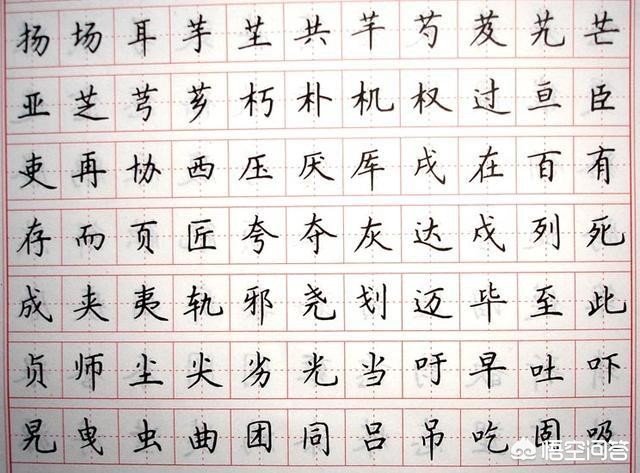 扬 场 耳 芋 芏 共 芊 芍 芨 芒
亚 芝 芎 芗 朽 朴 机 权 过 亘 臣
吏 再 协 西 压 厌 厍 戌 在 百 有
存 而 页 匠 夸 夺 灰 达 戍 列 死
成 夹 夷 轨 邪 尧 划 迈 毕 至 此
贞 师 尘 尖 劣 光 当 吁 早 吐 吓
曳 虫 曲 团 同 吕 吊 吃 吸
悟空问答